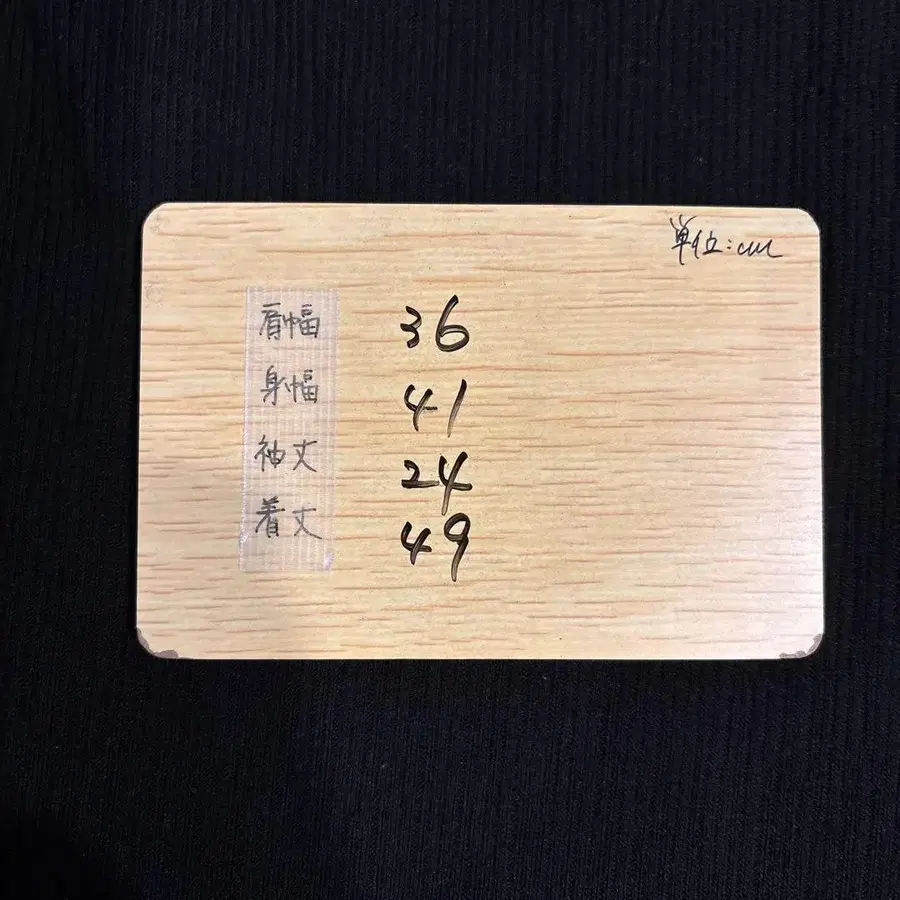 単位:cm
肩幅 36
身幅 41
袖丈 24
着丈 49